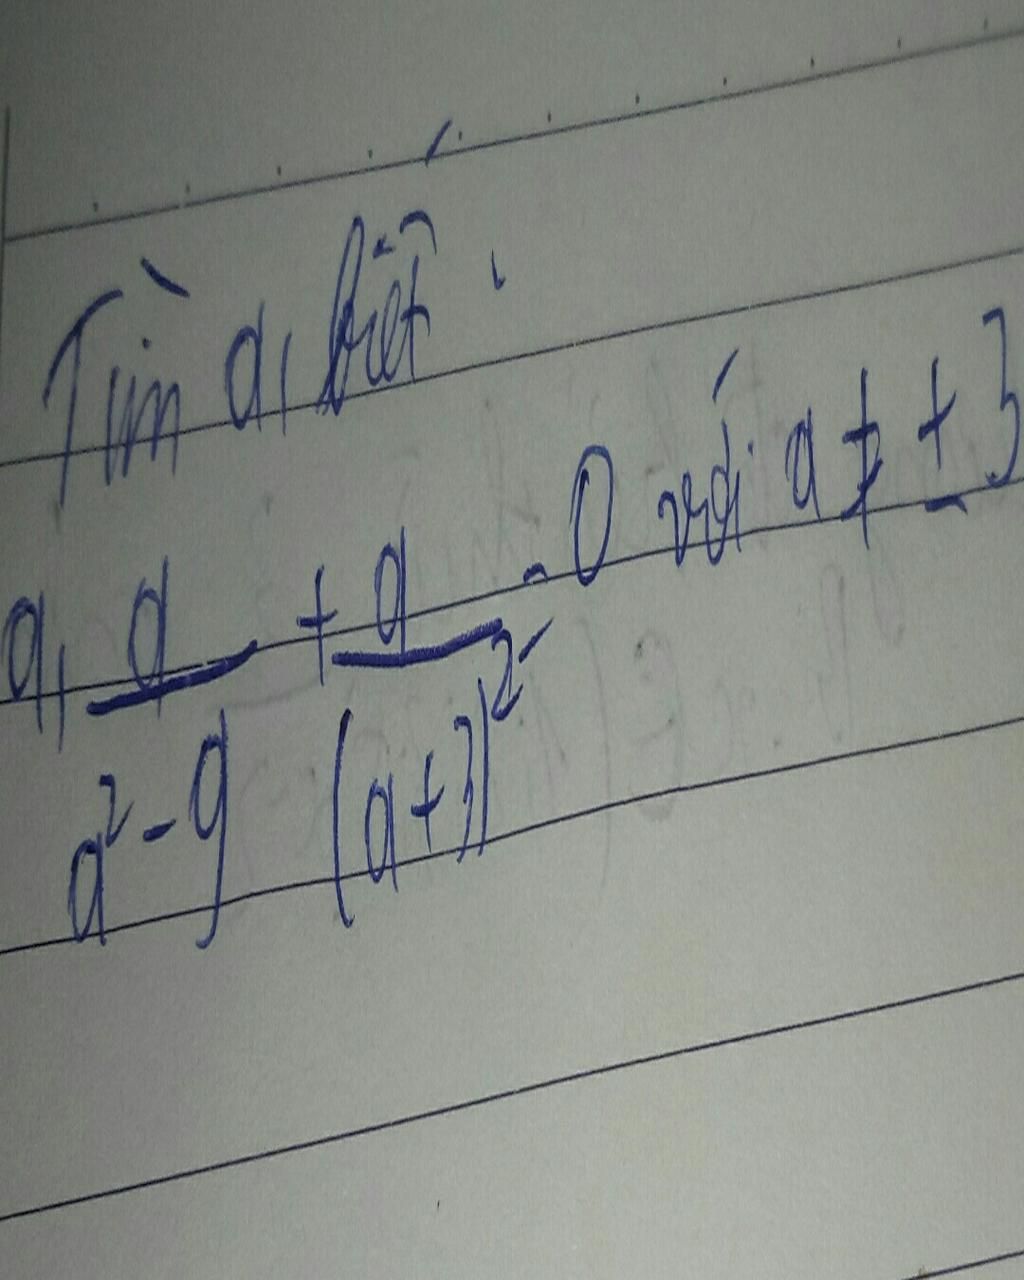 Tìm a, biết:
a, a/(a² - 9) + a/(a+3)² = 0 với a ≠ ± 3